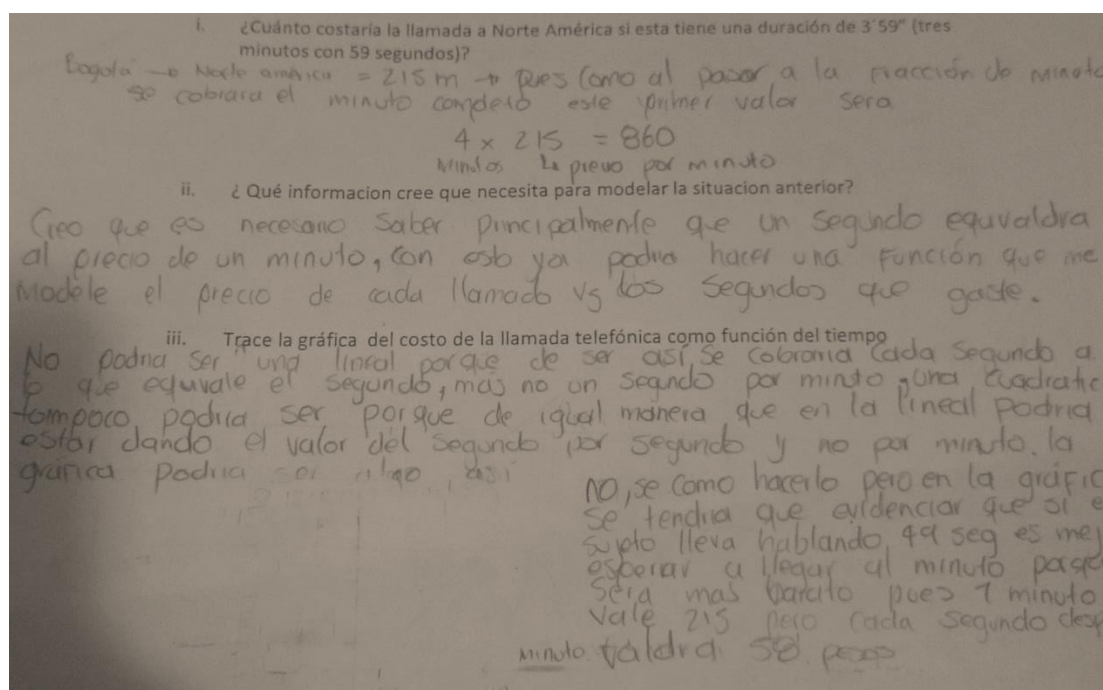 i. ¿Cuánto costaría la llamada a Norte América si esta tiene una duración de 3´59" (tres
minutos con 59 segundos)?
Bogotá → Norte américa = 215 m → Pues como al pasar a la fracción de minuto
se cobrara el minuto completo este primer valor sera
4 x 215 = 860
Minutos ↳ precio por minuto
ii. ¿ Qué informacion cree que necesita para modelar la situacion anterior?
Creo que es necesario saber principalmente que un segundo equivaldra
al precio de un minuto, con esto ya podria hacer una función que me
Modele el precio de cada llamada vs los segundos que gaste.
iii. Trace la gráfica del costo de la llamada telefónica como función del tiempo
No podria ser una lineal porque de ser así se cobraria cada segundo a
lo que equivale el segundo, mas no un segundo por minuto, una cuadratic
tampoco podria ser porque de igual manera que en la lineal podria
estar dando el valor del segundo por segundo y no por minuto. la
grafica podria ser algo así
NO, se como hacerlo pero en la gráfic
se tendria que evidenciar que si e
sujeto lleva hablando 49 seg es mej
esperar a llegar al minuto porque
sera mas barato pues 1 minuto
vale 215 pero cada segundo desp
minuto valdra 58 pesos